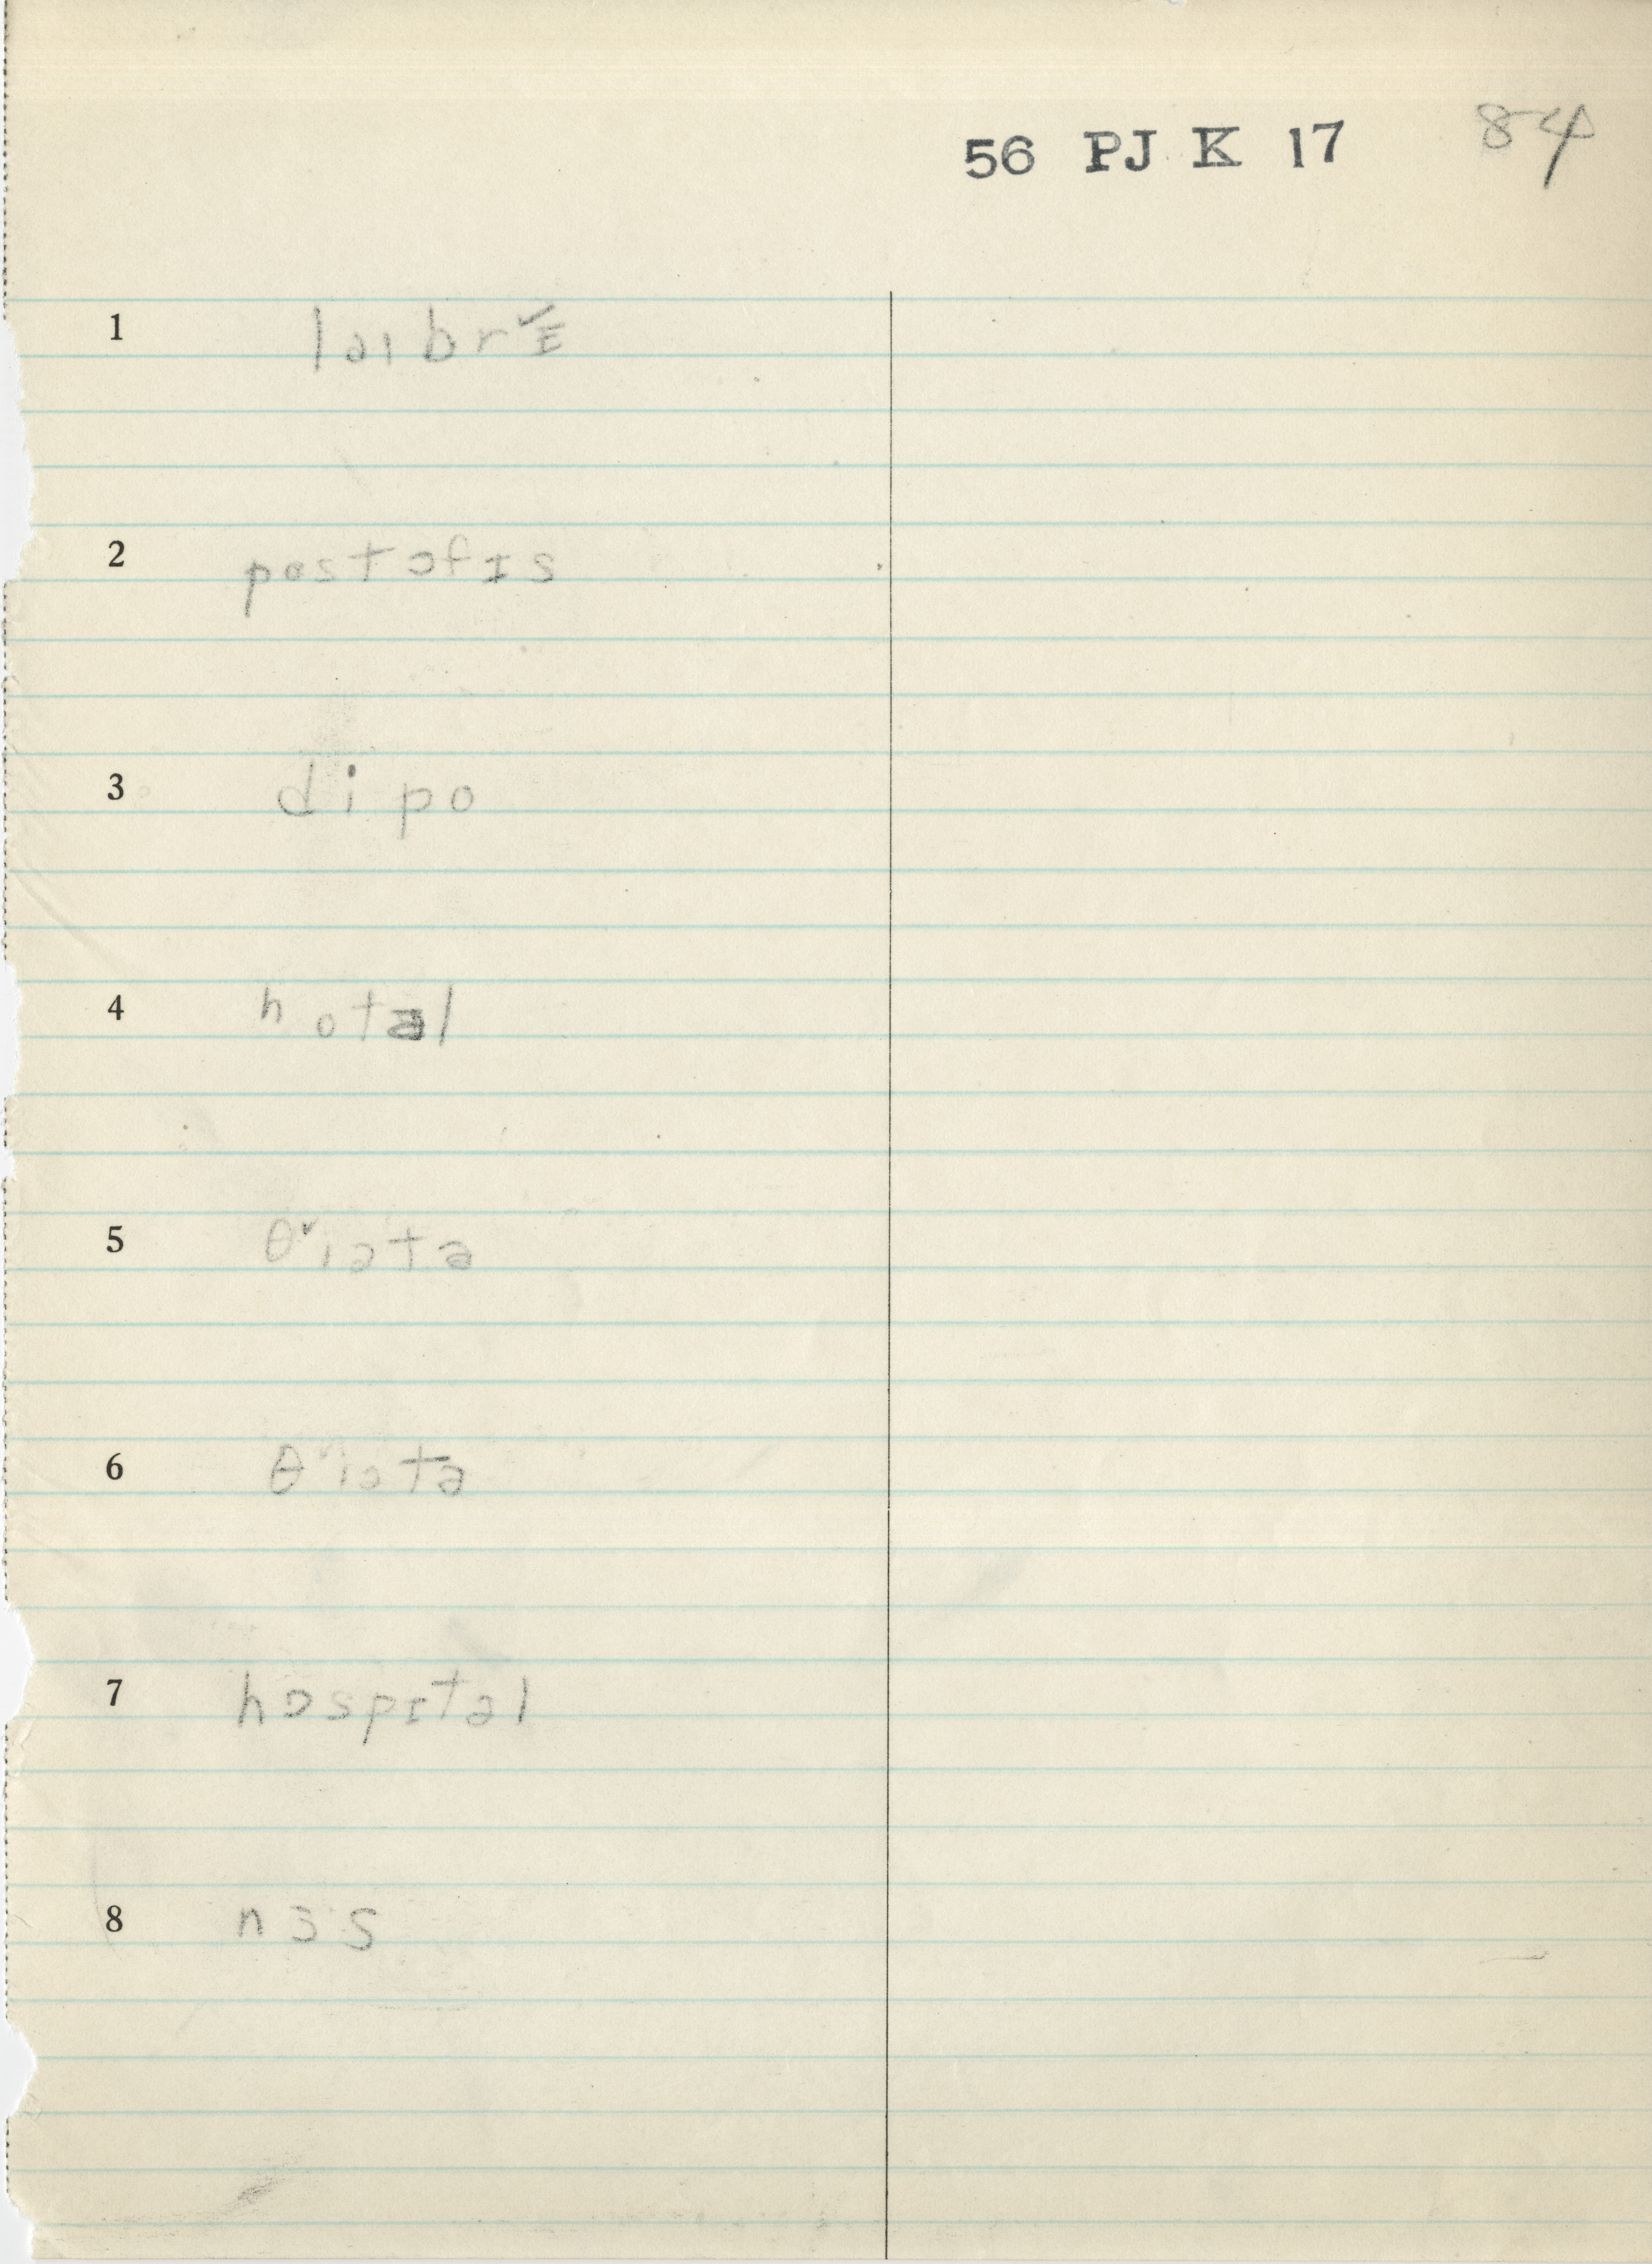 56 PJ K 17 84
1 laıbrˇɪ
2 postɔfɪs
3 dipo
4 hotəl
5 θˇiətə
6 θˇiətə
7 hɒspɪtəl
8 nɜs